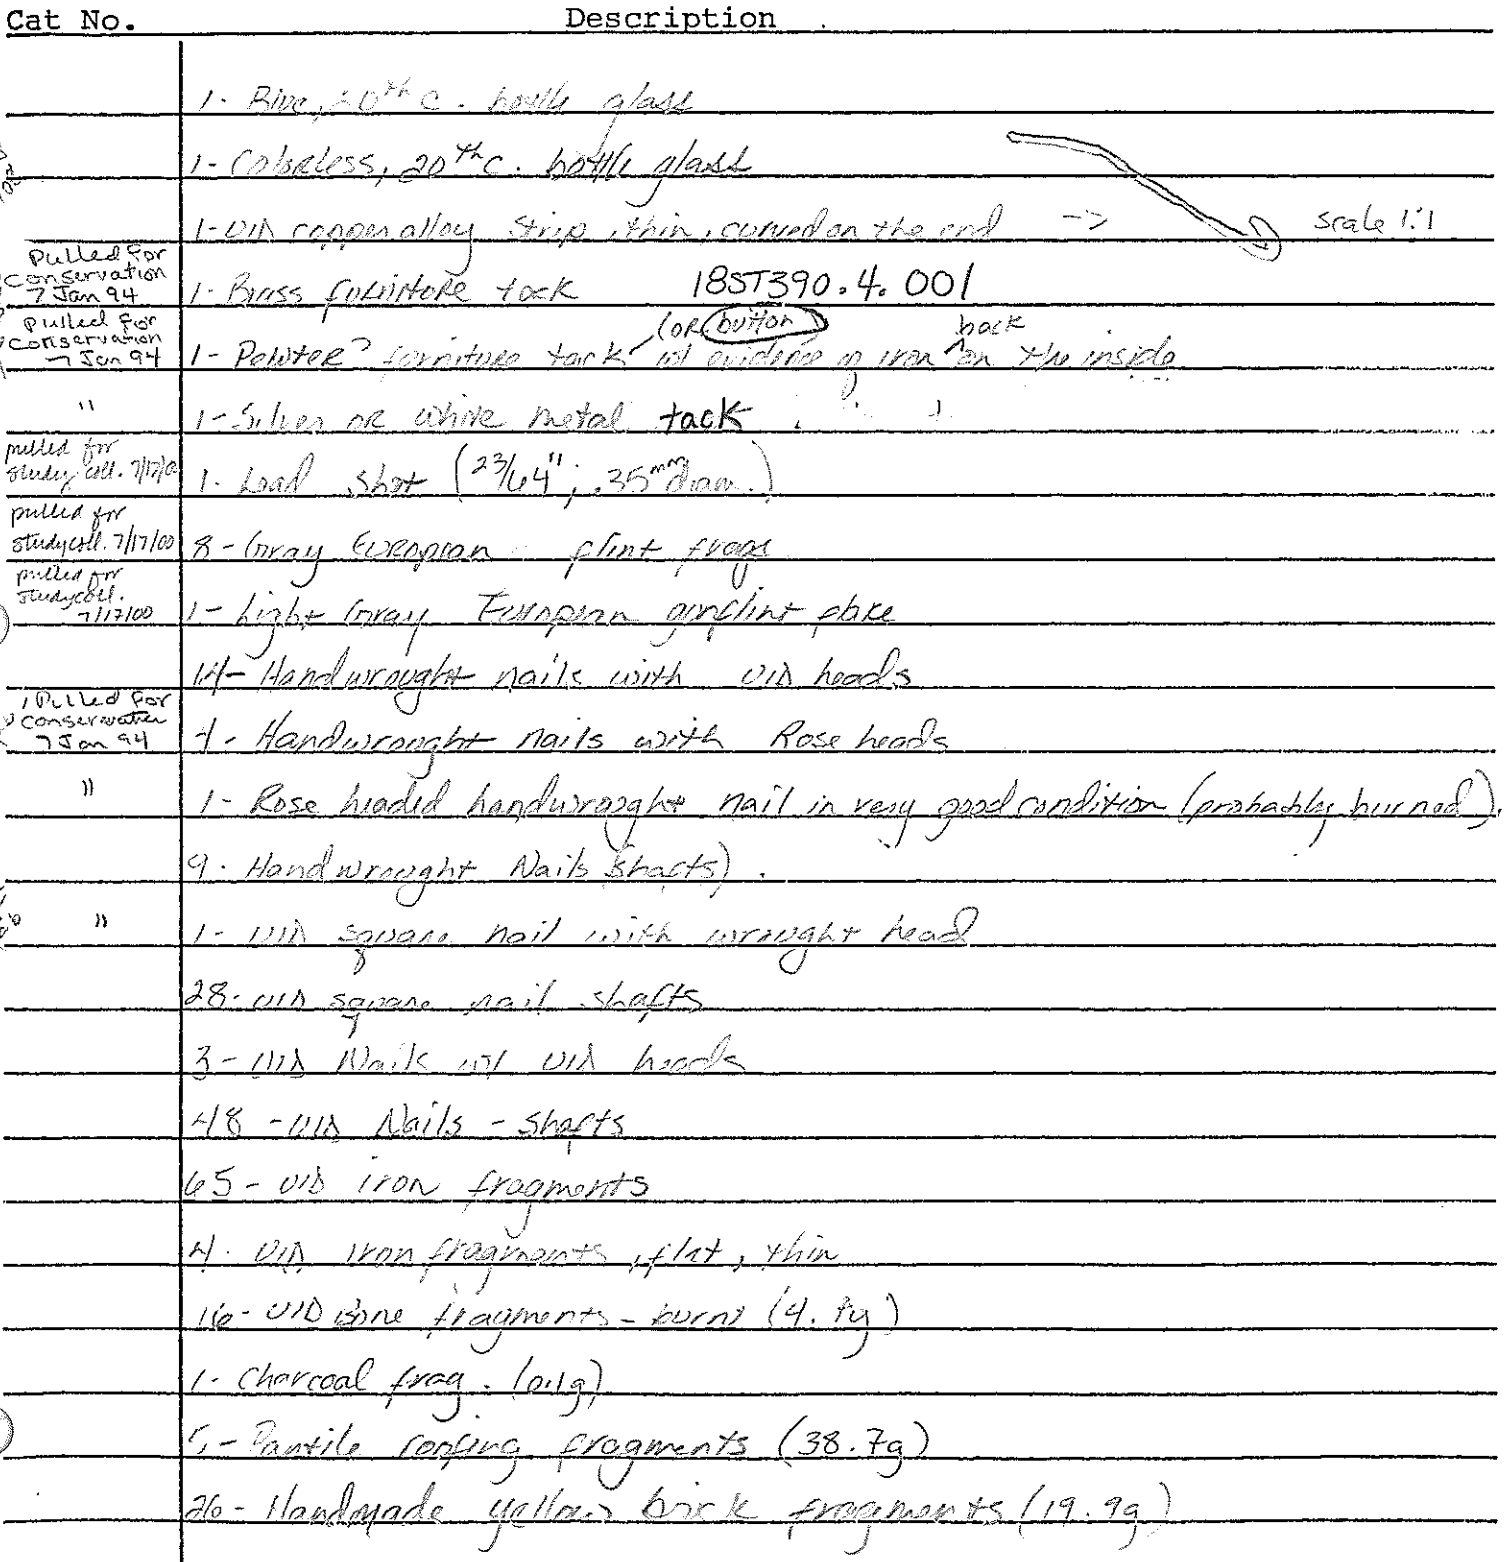 Cat No. Description
1- Blue, 20th C. bottle glass
1- Colorless, 20th C. bottle glass
1- UID copper alloy strip, thin, curved on the end -> scale 1:1
Pulled for
Conservation
7 Jan 94
1- Brass furniture tack 18ST390.4.001
Pulled for
Conservation
7 Jan 94
(OR button) back
1- Pewter? furniture tack w/ evidence of iron on the inside
" 1- Silver or white metal tack
pulled for
study coll. 7/17/00
1- Lead shot (23/64"; .35mm diam.)
pulled for
study coll. 7/17/00
8- Gray European flint frags
pulled for
study coll.
7/17/00
1- Light Gray European gunflint flake
14- Handwrought nails with UID heads
Pulled for
conservation
7 Jan 94
- Handwrought nails with Rose heads
" 1- Rose headed handwrought nail in very good condition (probably burned).
9- Handwrought Nails shafts).
" 1- UID square nail with wrought head
28- UID square nail shafts
3- UID Nails w/ UID heads
48 - UID Nails - shafts
65- UID iron fragments
4- UID iron fragments, flat, thin
16- UID Bone fragments - burnt
1- Charcoal frag. (0.1g)
5- Pantile roofing fragments (38.7g)
26- Handmade yellow brick fragments (19.9g)